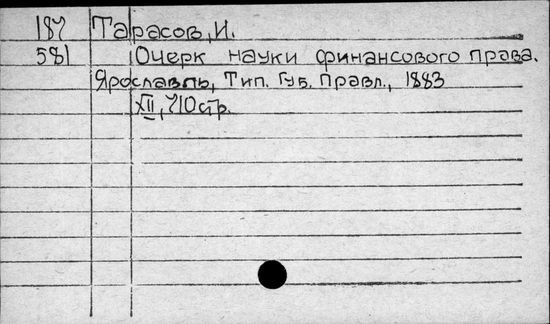 187 Тарасов, И.
581 Очерк науки финансового права.
Ярославль, Тип. Губ. Правл., 1883
XII, 710 стр.